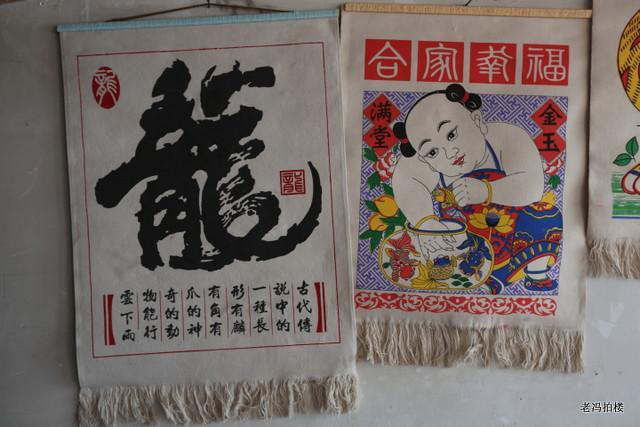 龍
龍
龍
古代傳
說中的
一種長
形有麟
有角有
爪的神
奇的動
物能行
雲下雨
合家幸福
金玉
满堂
老冯拍楼